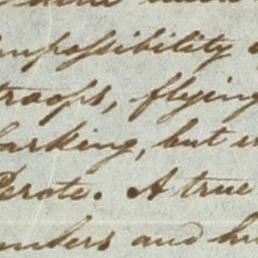 impossibility
troops, flying
barking, but
Perote. A true
umbers and